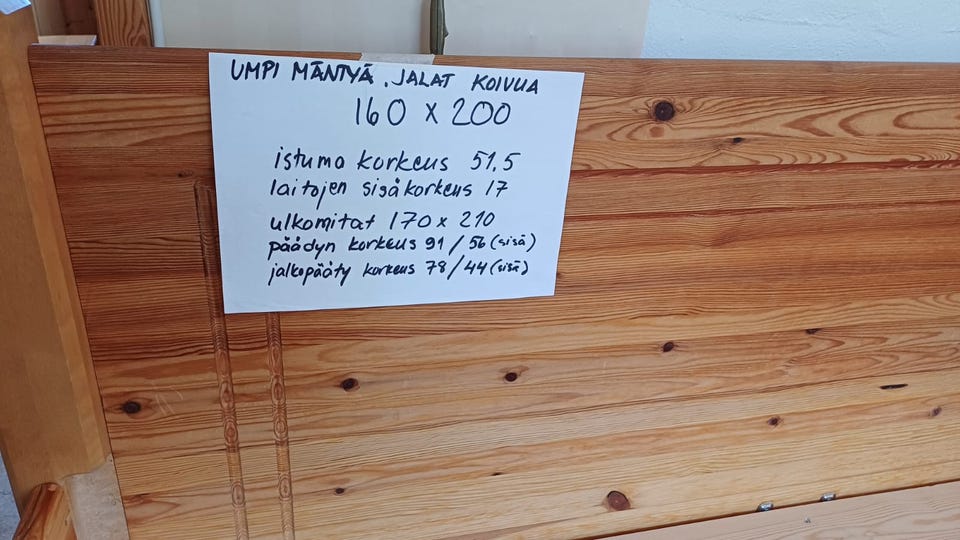 UMPI MÄNTYÄ. JALAT KOIVUA
160 x 200
istuma korkeus 51,5
laitojen sisäkorkeus 17
ulkomitat 170 x 210
päädyn korkeus 91/56 (sisä)
jalkopääty korkeus 78/44 (sisä)